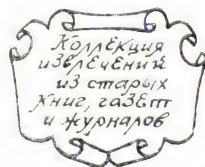 Коллекция
извлечений
из старых
книг, газет
и журналов